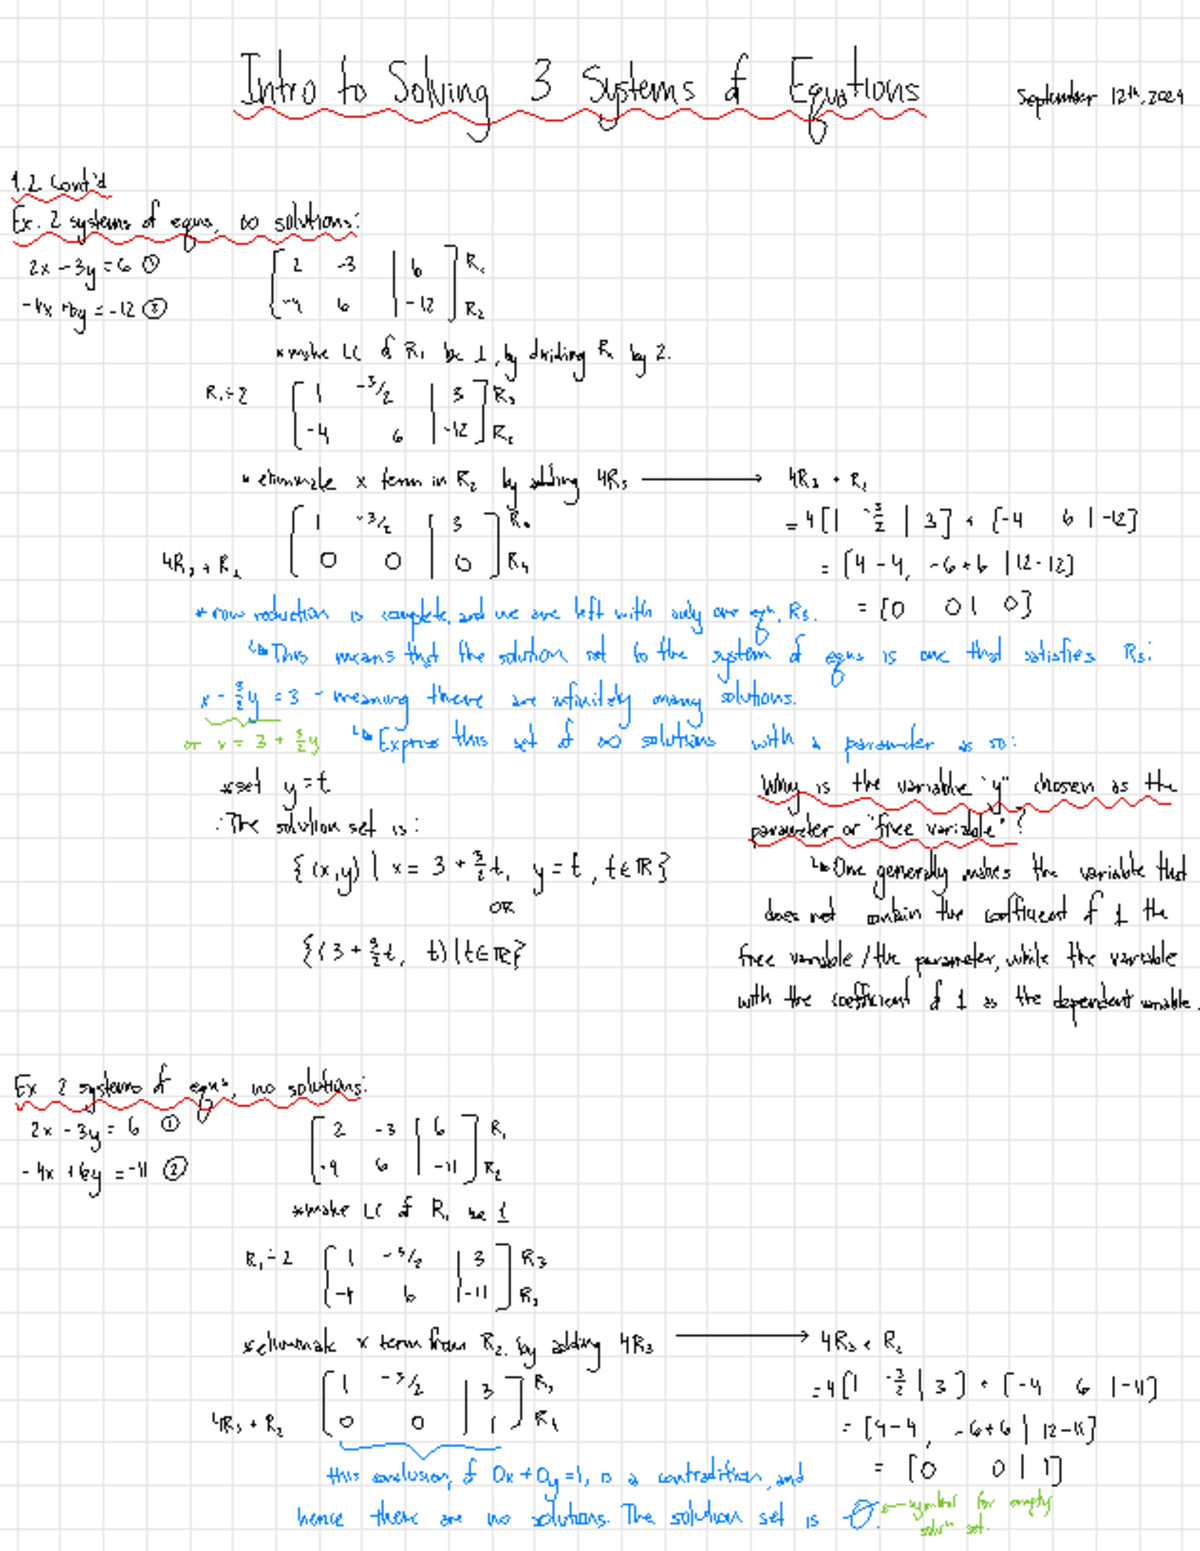 Intro to Solving 3 Systems of Equations
September 12th, 2024
1.2 Cont'd
Ex. 2 systems of eqns, ∞ solutions:
2x - 3y = 6 ①
-4x + 6y = -12 ②
[ 2 -3 | 6 ] R₁
[ -4 6 | -12 ] R₂
*make LC of R₁ be 1, by dividing R₁ by 2.
R₁ ÷ 2 [ 1 -3/2 | 3 ] R₃
[ -4 6 | -12 ] R₂
*eliminate x term in R₂ by adding 4R₃ → 4R₃ + R₂
[ 1 -3/2 | 3 ] R₃
4R₃ + R₂ [ 0 0 | 0 ] R₄
= 4[1 -3/2 | 3] + [-4 6 | -12]
= [4 - 4, -6+6 | 12-12]
= [0 0 | 0]
*row reduction is complete, and we are left with only one eqn, R₃.
↳ This means that the solution set to the system of eqns is one that satisfies R₃:
x - 3/2 y = 3 - meaning there are infinitely many solutions.
or x = 3 + 3/2 y ↳ Express this set of ∞ solutions with a parameter as so:
*set y = t
∴ The solution set is:
{(x,y) | x = 3 + 3/2 t, y = t, t ∈ ℝ}
OR
{(3 + 3/2 t, t) | t ∈ ℝ}
Why is the variable "y" chosen as the
parameter or "free variable"?
↳ One generally makes the variable that
does not contain the coefficient of 1 the
free variable / the parameter, while the variable
with the coefficient of 1 is the dependent variable.
Ex 2 systems of eqns, no solutions:
2x - 3y = 6 ①
-4x + 6y = -11 ②
[ 2 -3 | 6 ] R₁
[ -4 6 | -11 ] R₂
*make LC of R₁ be 1
R₁ ÷ 2 [ 1 -3/2 | 3 ] R₃
[ -4 6 | -11 ] R₂
*eliminate x term from R₂ by adding 4R₃ → 4R₃ + R₂
[ 1 -3/2 | 3 ] R₃
4R₃ + R₂ [ 0 0 | 1 ] R₄
= 4[1 -3/2 | 3] + [-4 6 | -11]
= [4-4, -6+6 | 12-11]
= [0 0 | 1]
this conclusion, of 0x + 0y = 1, is a contradition, and
hence there are no solutions. The solution set is ∅. ← symbol for empty
solun set.